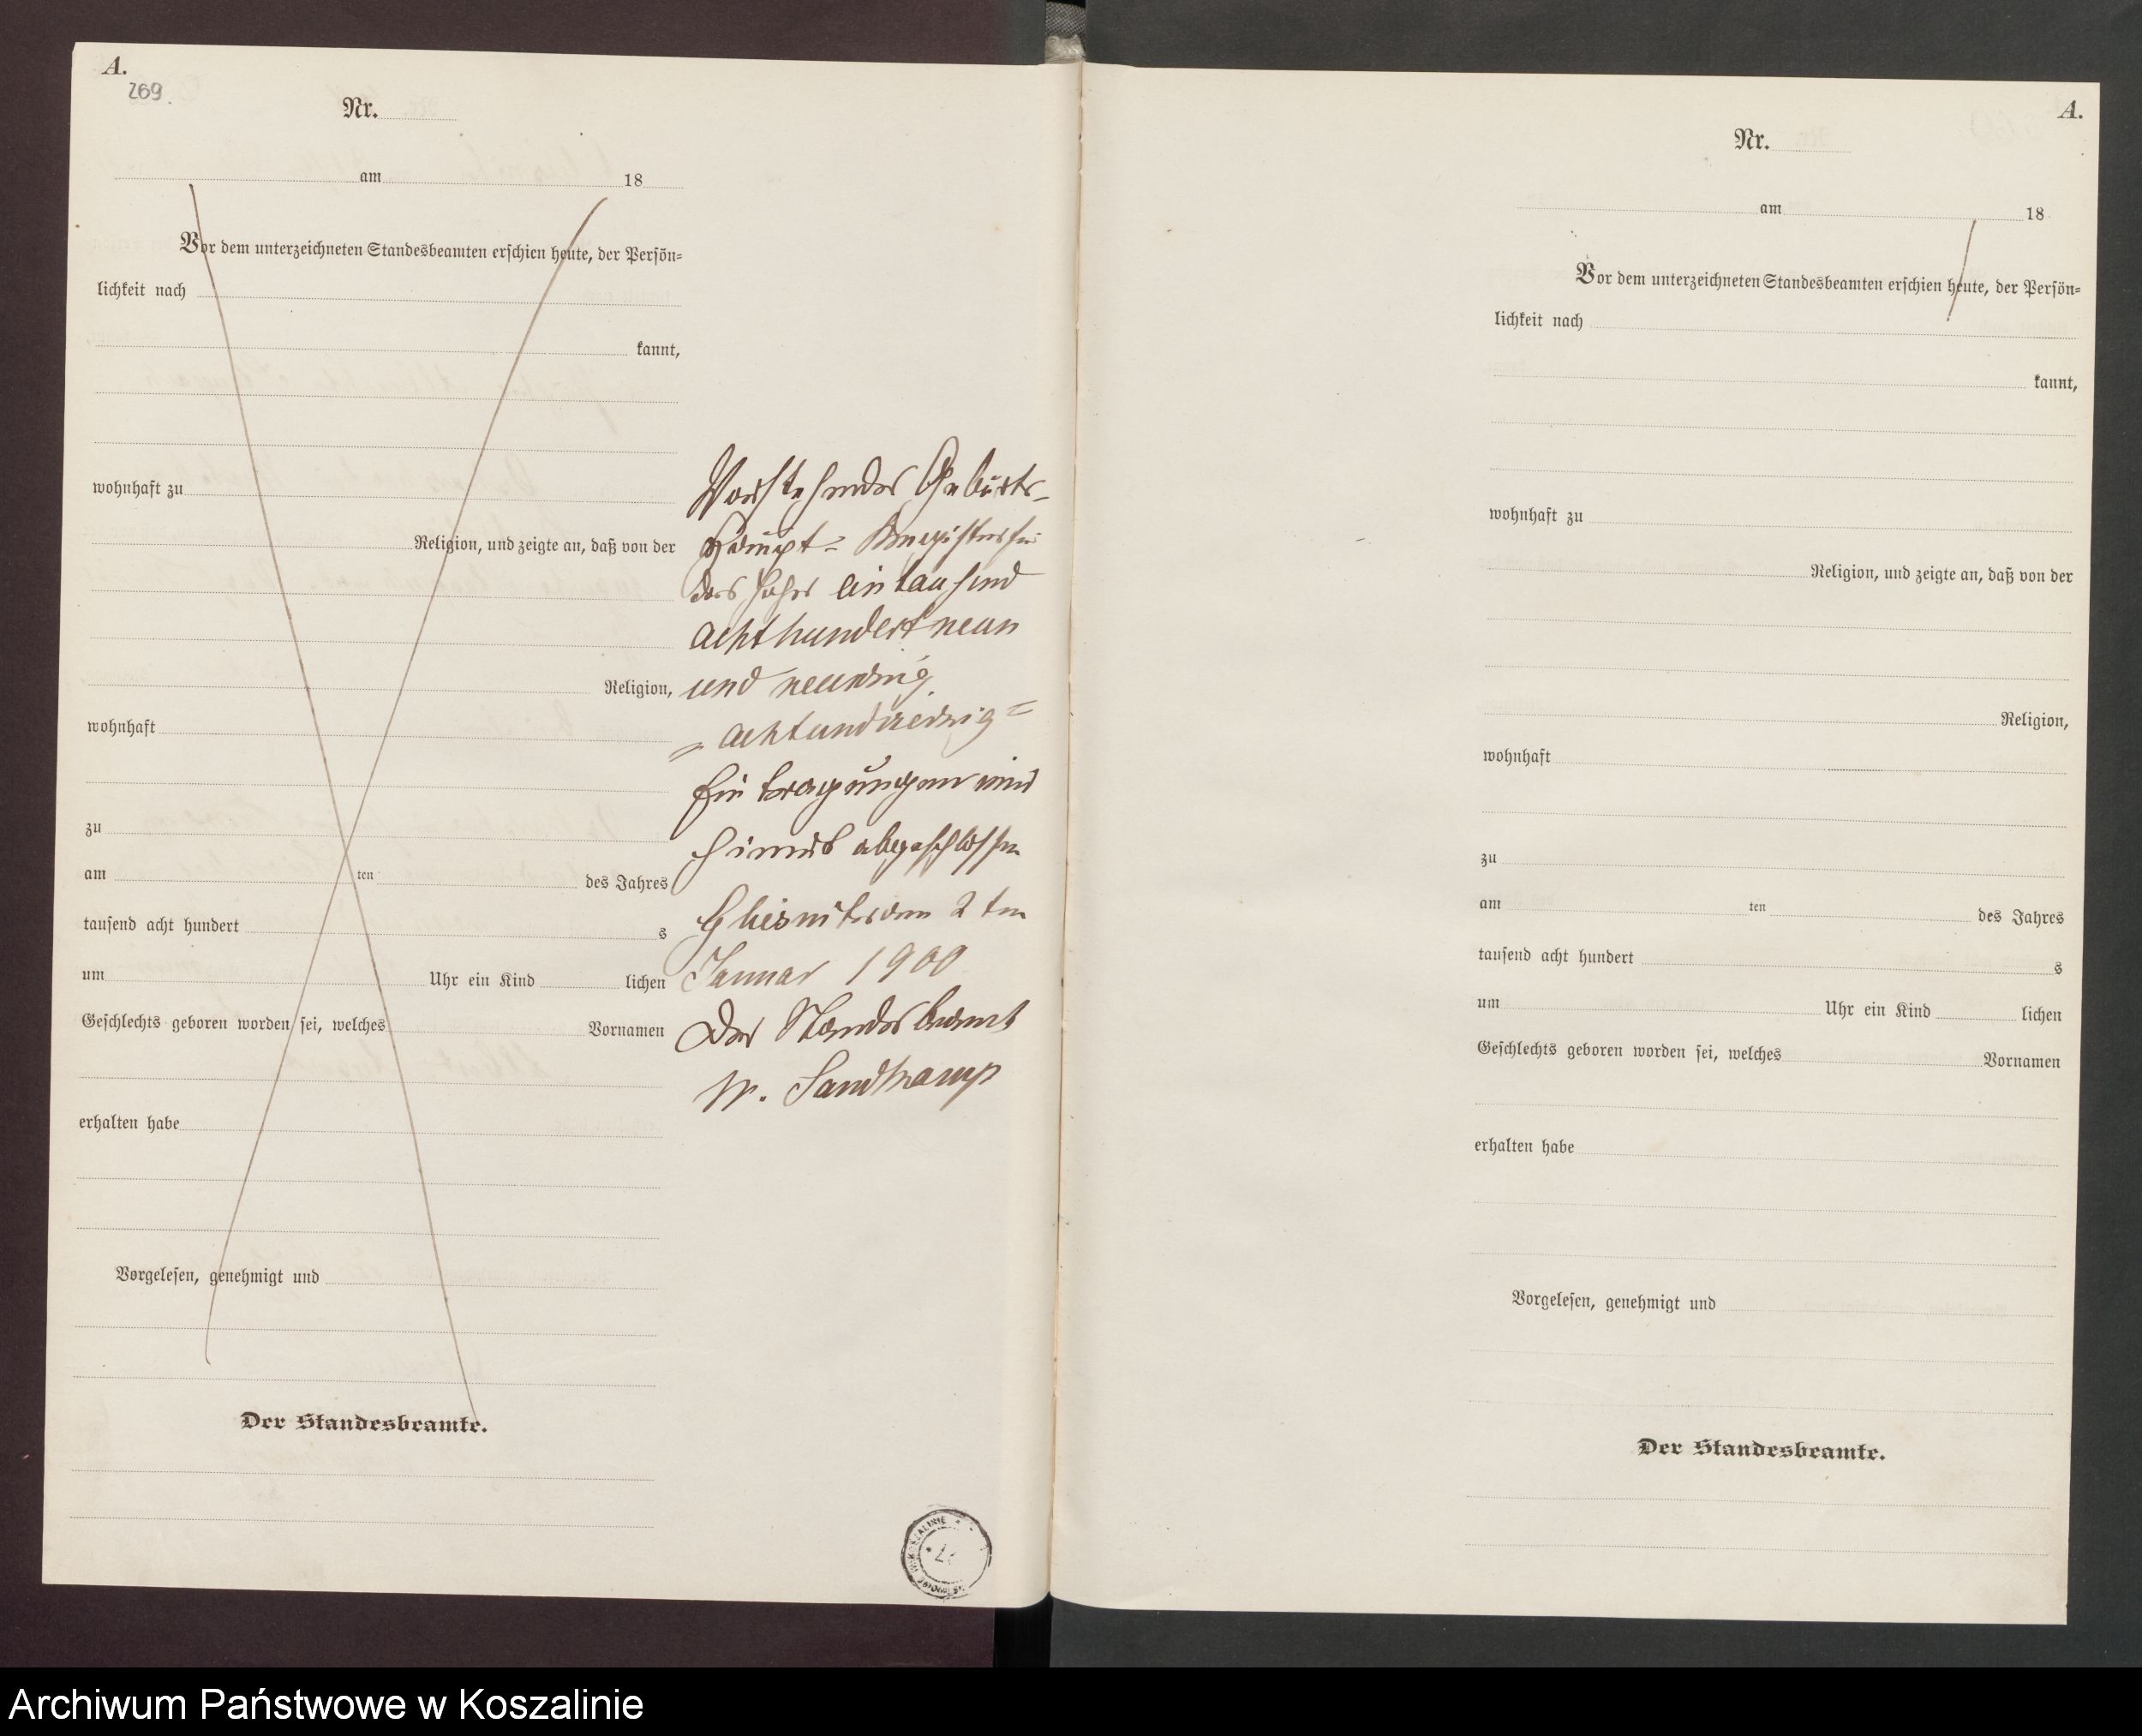 A.
269.
Nr.
am 18
Vor dem unterzeichneten Standesbeamten erschien heute, der Persön=
lichkeit nach
kannt,
wohnhaft zu
Religion, und zeigte an, daß von der
Religion,
wohnhaft
zu
am ten des Jahres
tausend acht hundert s
um Uhr ein Kind lichen
Geschlechts geboren worden sei, welches Vornamen
erhalten habe
Vorgelesen, genehmigt und
Der Standesbeamte.
Vorstehendes Geburts-
Haupt=
das Jahr eintausend
achthundert neun
und neunzig
= achtundvierzig =
Eintragungen wird
hiermit abgeschlossen
den 2 ten
Januar 1900
Der Standesbeamte
W. Sandkamp
KOSZALINIE
A.
Nr.
am 18
Vor dem unterzeichneten Standesbeamten erschien heute, der Persön=
lichkeit nach
kannt,
wohnhaft zu
Religion, und zeigte an, daß von der
Religion,
wohnhaft
zu
am ten des Jahres
tausend acht hundert s
um Uhr ein Kind lichen
Geschlechts geboren worden sei, welches Vornamen
erhalten habe
Vorgelesen, genehmigt und
Der Standesbeamte.
Archiwum Państwowe w Koszalinie